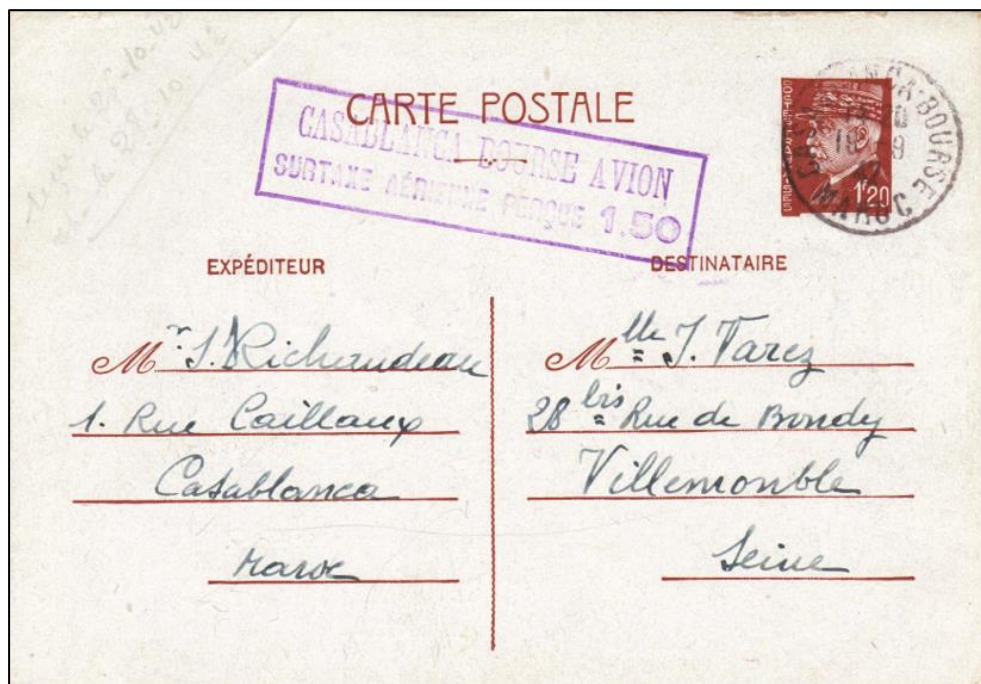 CARTE POSTALE
CASABLANCA BOURSE AVION
SURTAXE AÉRIENNE PERÇUE 1.50
CASABLANCA-BOURSE
MAROC
1F20
EXPÉDITEUR
Mr J. Richaudeau
1. Rue Caillaux
Casablanca
Maroc
DESTINATAIRE
Mlle J. Tarez
28 bis Rue de Bondy
Villemonble
Seine